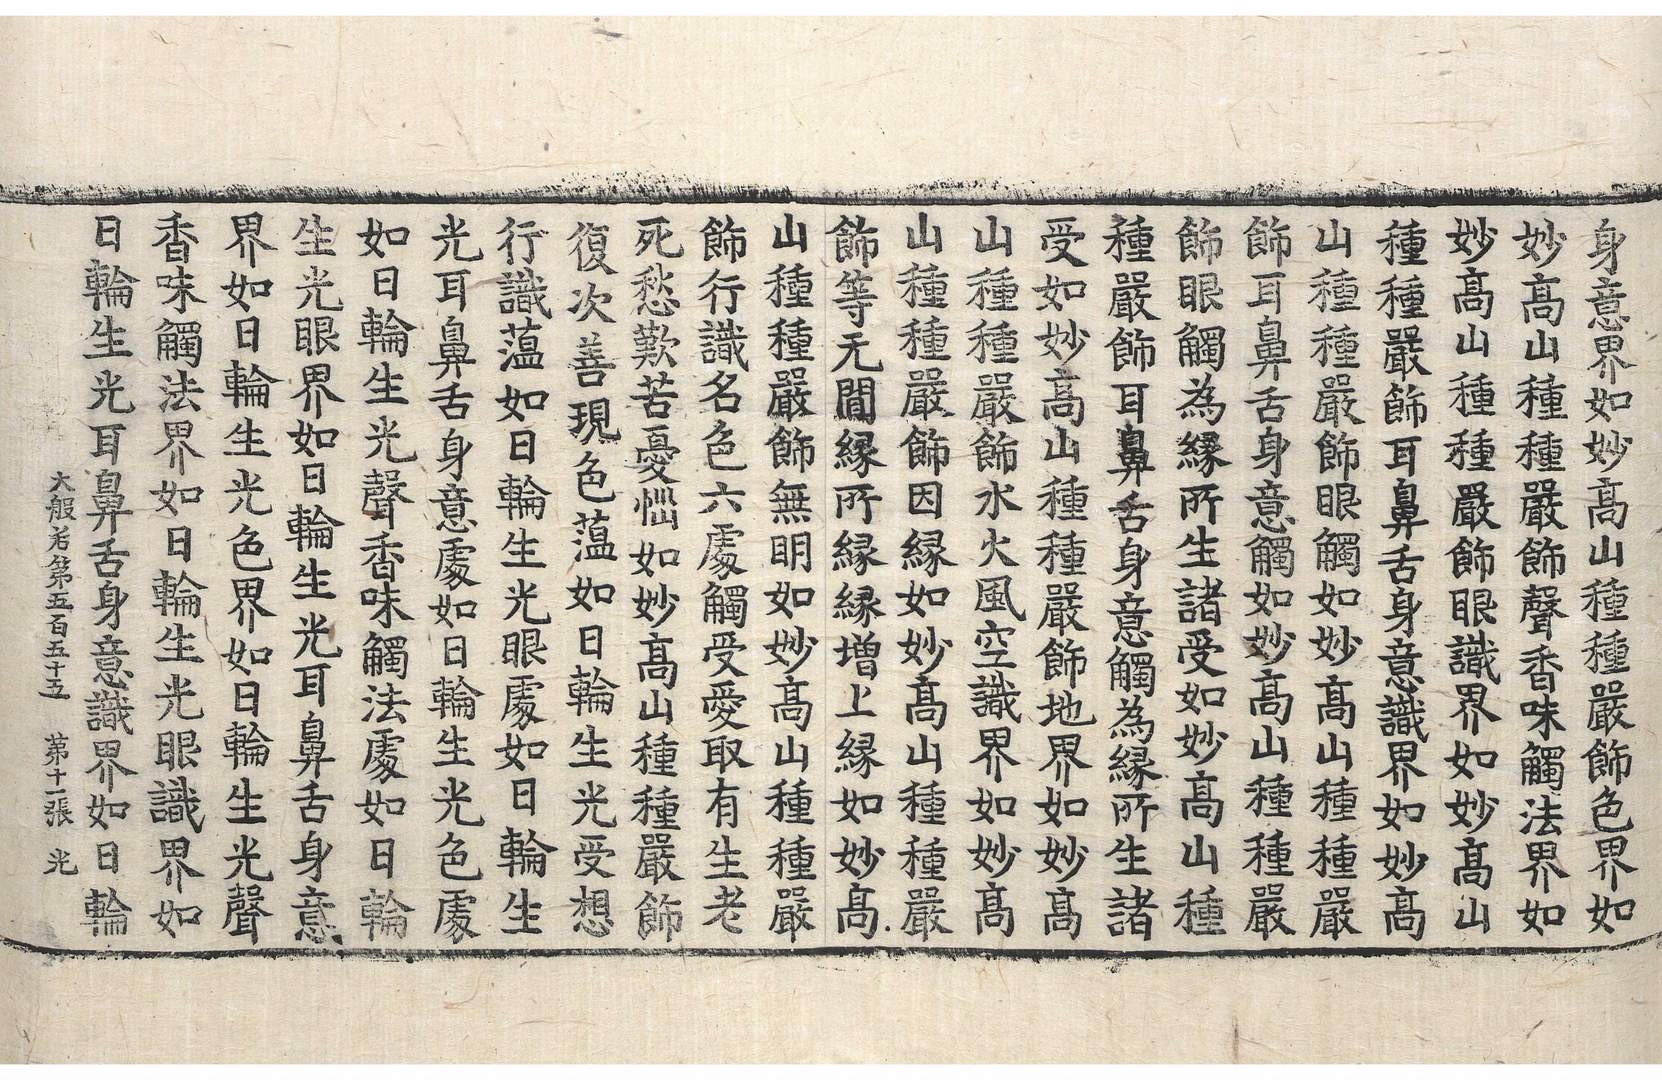 身意界如妙髙山種種嚴飾色界如
妙髙山種種嚴飾聲香味觸法界如
妙髙山種種嚴飾眼識界如妙髙山
種種嚴飾耳鼻舌身意識界如妙髙
山種種嚴飾眼觸如妙髙山種種嚴
飾耳鼻舌身意觸如妙髙山種種嚴
飾眼觸為縁所生諸受如妙髙山種
種嚴飾耳鼻舌身意觸為縁所生諸
受如妙髙山種種嚴飾地界如妙髙
山種種嚴飾水火風空識界如妙髙
山種種嚴飾因縁如妙髙山種種嚴
飾等无間縁所縁縁增上縁如妙髙
山種種嚴飾無明如妙髙山種種嚴
飾行識名色六處觸受愛取有生老
死愁歎苦憂惱如妙髙山種種嚴飾
復次善現色蘊如日輪生光受想
行識蘊如日輪生光眼處如日輪生
光耳鼻舌身意處如日輪生光色處
如日輪生光聲香味觸法處如日輪
生光眼界如日輪生光耳鼻舌身意
界如日輪生光色界如日輪生光聲
香味觸法界如日輪生光眼識界如
日輪生光耳鼻舌身意識界如日輪
大般若第五百五十五 第十一張 光